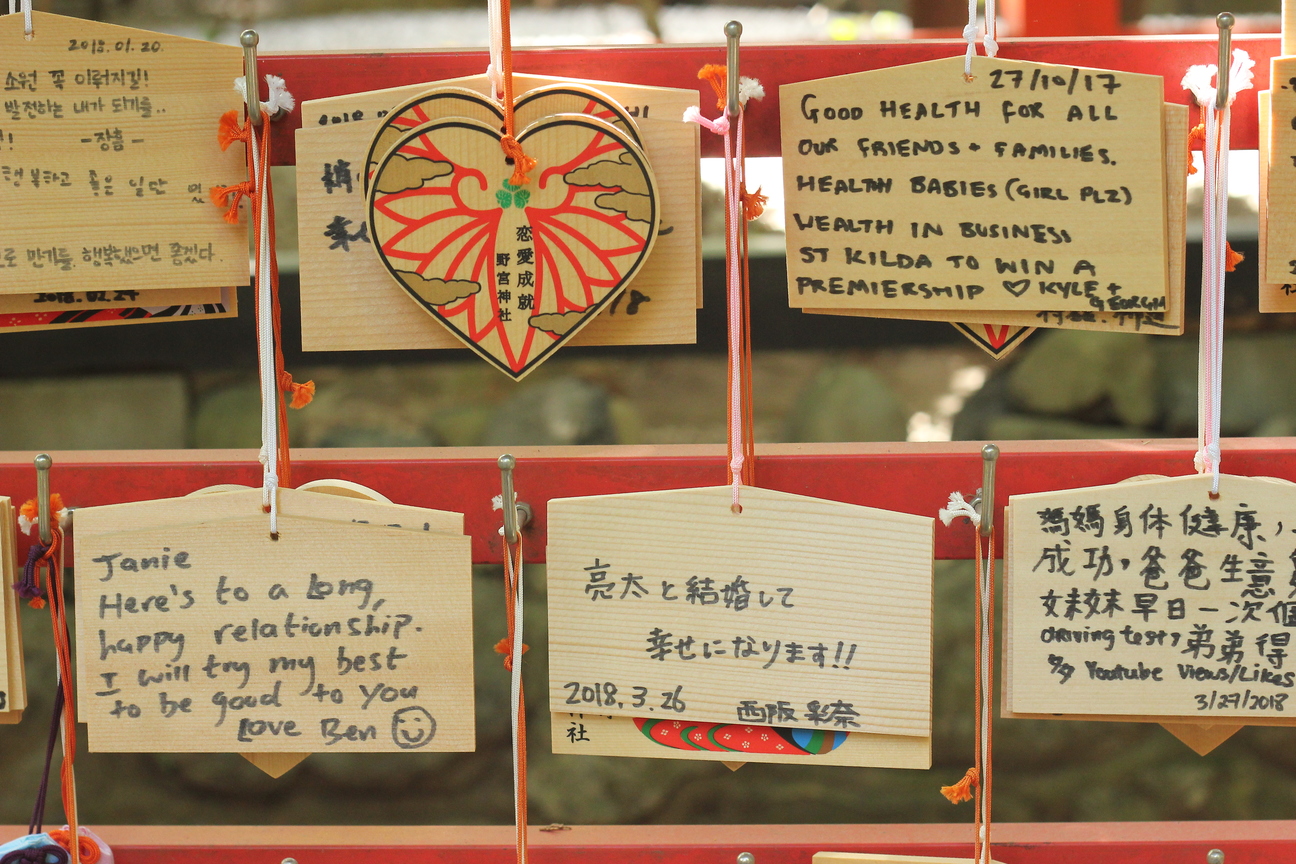 2018.01.20.
소원 꼭 이뤄지길!
발전하는 내가 되기를..
-장흠-
행복하고 좋은 일만
행복했으면 좋겠다.
2018.02.24
恋愛成就
野宮神社
27/10/17
GOOD HEALTH FOR ALL
OUR FRIENDS + FAMILIES.
HEALTH BABIES (GIRL PLZ)
WEALTH IN BUSINESS
ST KILDA TO WIN A
PREMIERSHIP ♡ KYLE +
GEORGIA
Janie
Here's to a long,
happy relationship.
I will try my best
to be good to you
Love Ben ☺
亮太と結婚して
幸せになります!!
2018.3.26 西阪 彩奈
神社
媽媽身体健康，
成功，爸爸生意
妹妹早日一次個
driving test，弟弟得
多 Youtube Views/Likes
3/27/2018